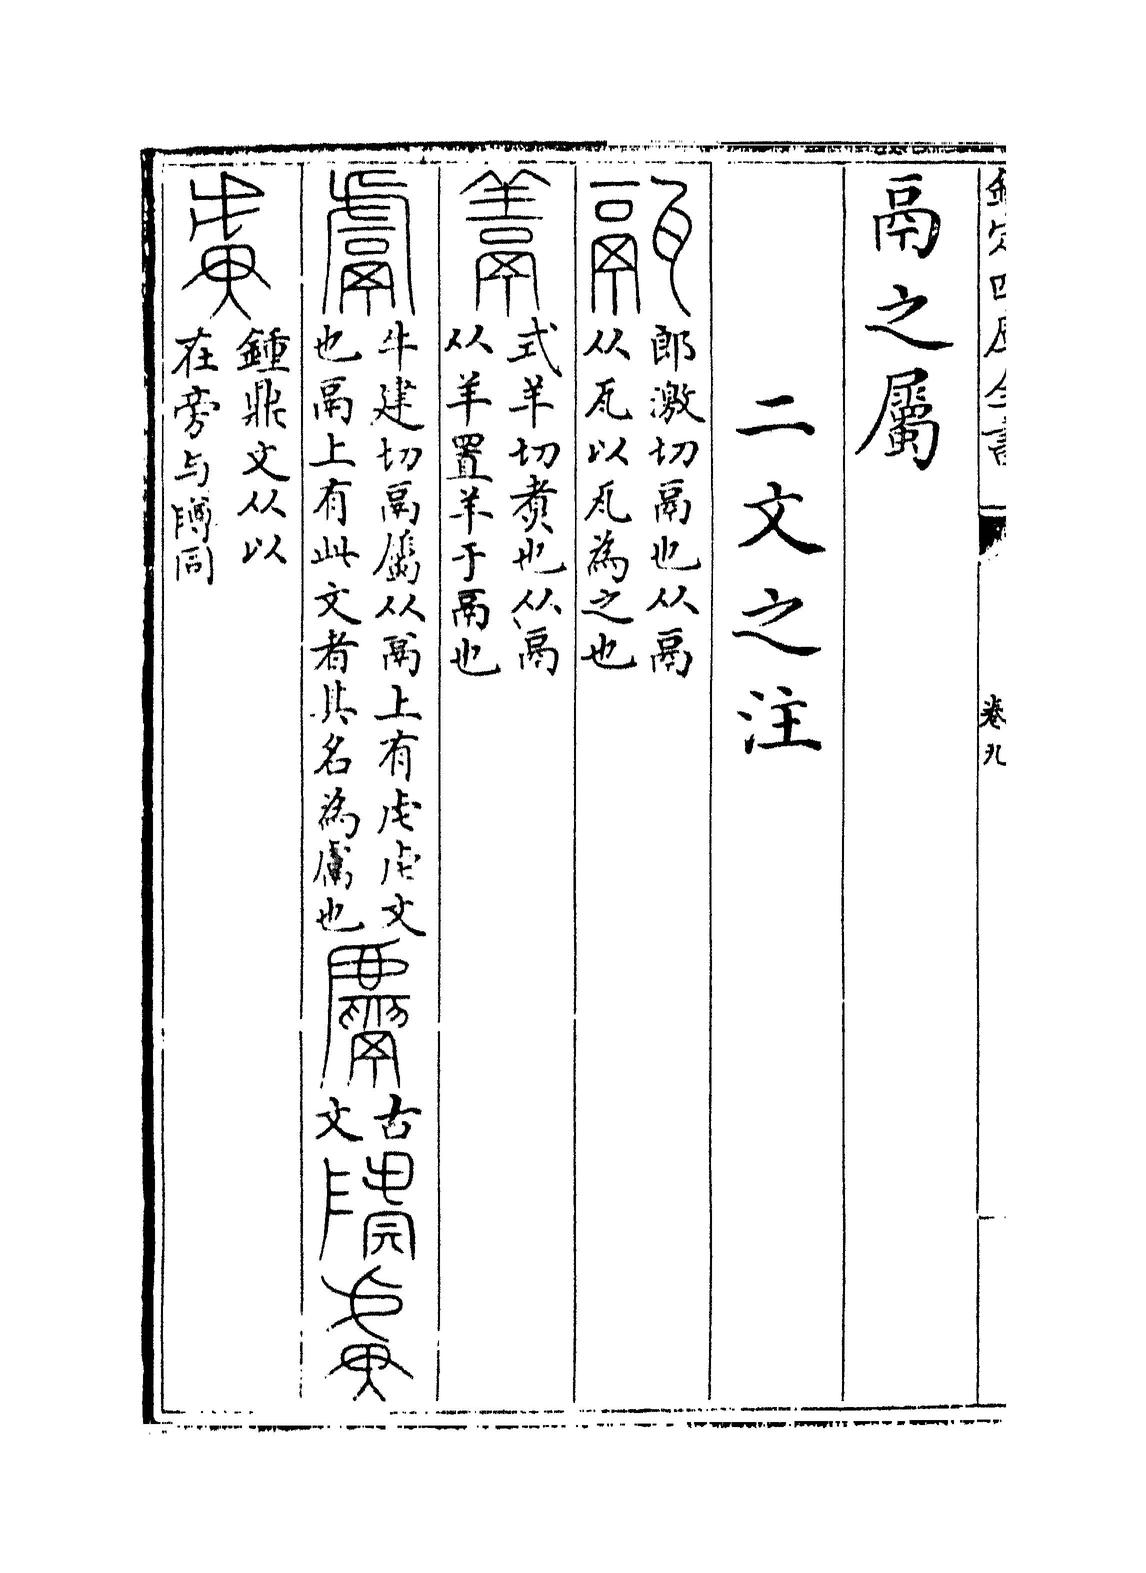 欽定四庫全書 卷九
鬲之屬
二文之注
㽁 郎激切鬲也从鬲
从瓦以瓦為之也
式羊切煑也从鬲
从羊置羊于鬲也
鬳 牛建切鬲屬从鬲上有虍虍文
也鬲上有此文者其名為鬳也
古文
鍾鼎文从以
在旁与同